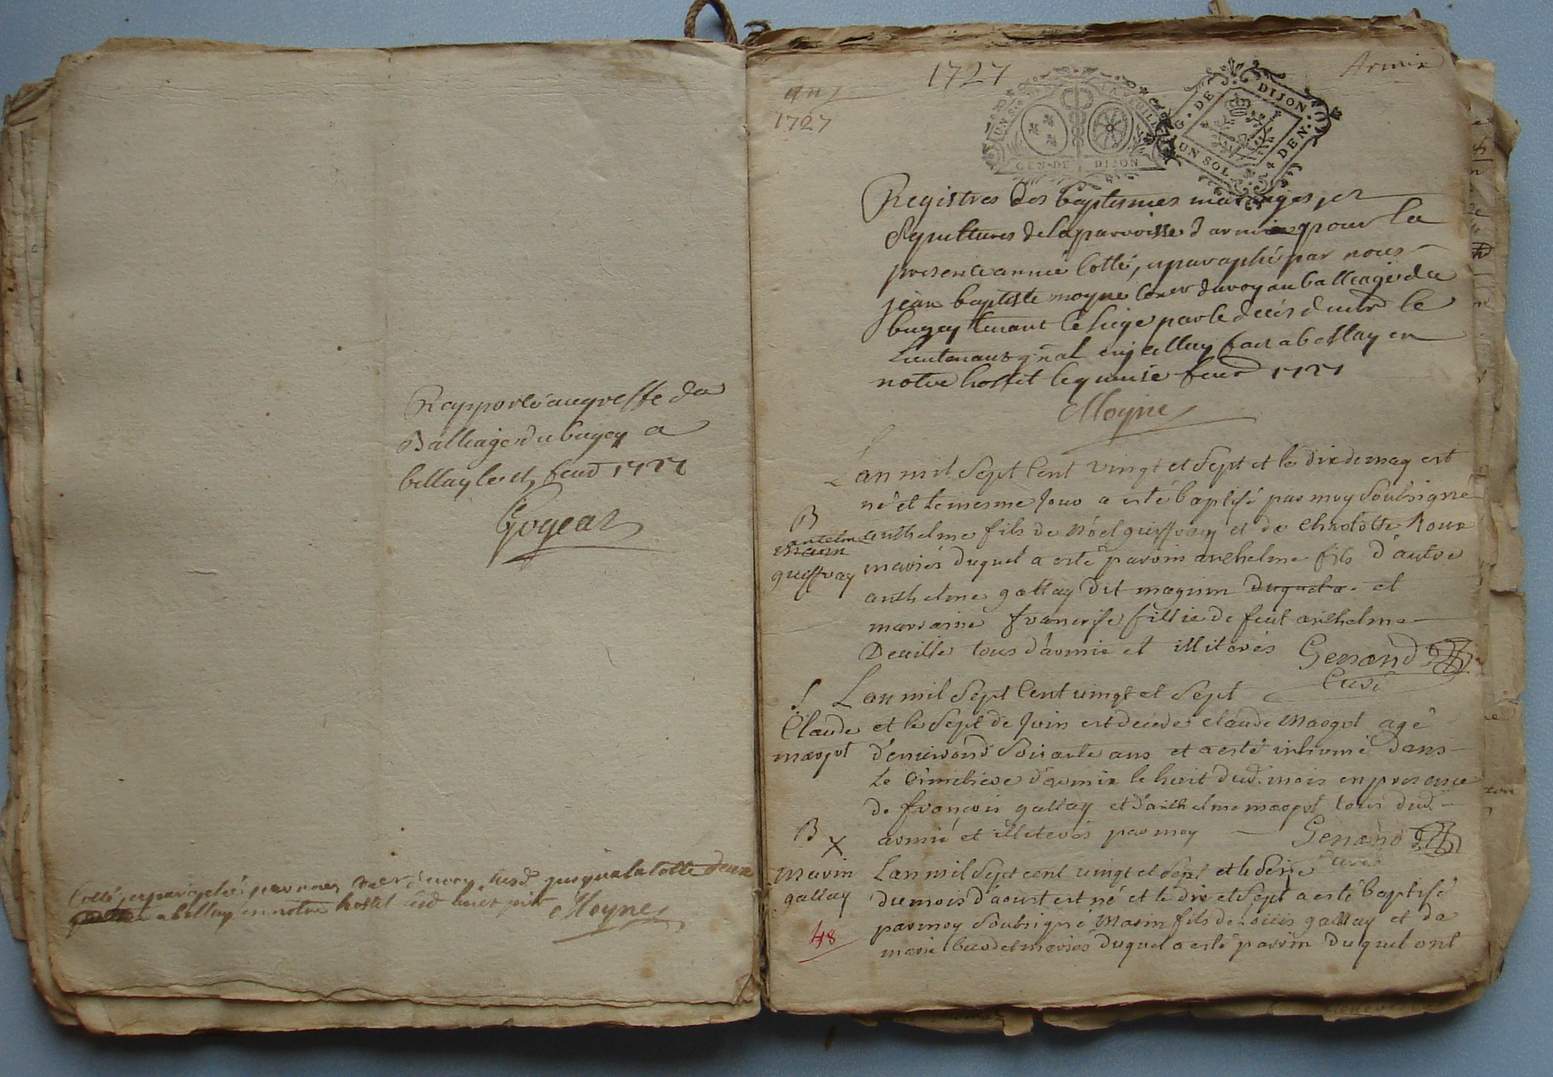 Rapporté au greffe du
Balliage du bugey a
bellay le feud 1727
Gogeat
jusqua la cotte deux
a bellay en notre hostel
Moyne
1727
Armix
an
1727
UN S
LA FEUILL
GEN. DE DIJON
G. DE DIJON
UN SOL 4 DEN.
Registres des baptesmes mariages et
Sepultures de la parroisse d'armix pour la
presente année cotté, et paraphé par nous
jean baptiste moyne du roy au balliage du
bugey tenant le siege par le deces de le
Lieutenant gñal fait a bellay en
notre hostel le quinse feud 1727
Moyne
L'an mil sept cent vingt et sept et le dix de may est
né et le mesme jour a esté baptisé par moy soubsigné
B
antelme
guiffray
anthelme fils de Noel guiffray et de Charlotte Roux
mariés duquel a esté parrin anthelme fils d'autre
anthelme gallay dit magnin duquel et
marraine francoise fillie de feut anthelme
Deville tous d'armix et illiterés Genand
Curé
S
Claude
margot
L'an mil sept cent vingt et sept
et le sept de juin est decede claude Margot agé
d'environ soixante ans et a esté inhumé dans
le Cimetiere d'armix le huit dud. mois en presence
de francois gallay et d'anthelme margot tous dud.
armix et illiterés par moy Genand
Curé
B
X
Marin
gallay
48
L'an mil sept cent vingt et sept et le seize
du mois d'aoust est né et le dix et sept a esté baptisé
par moy soubsigné Marin fils de gallay et de
marie mariés duquel a esté parrin duquel ont